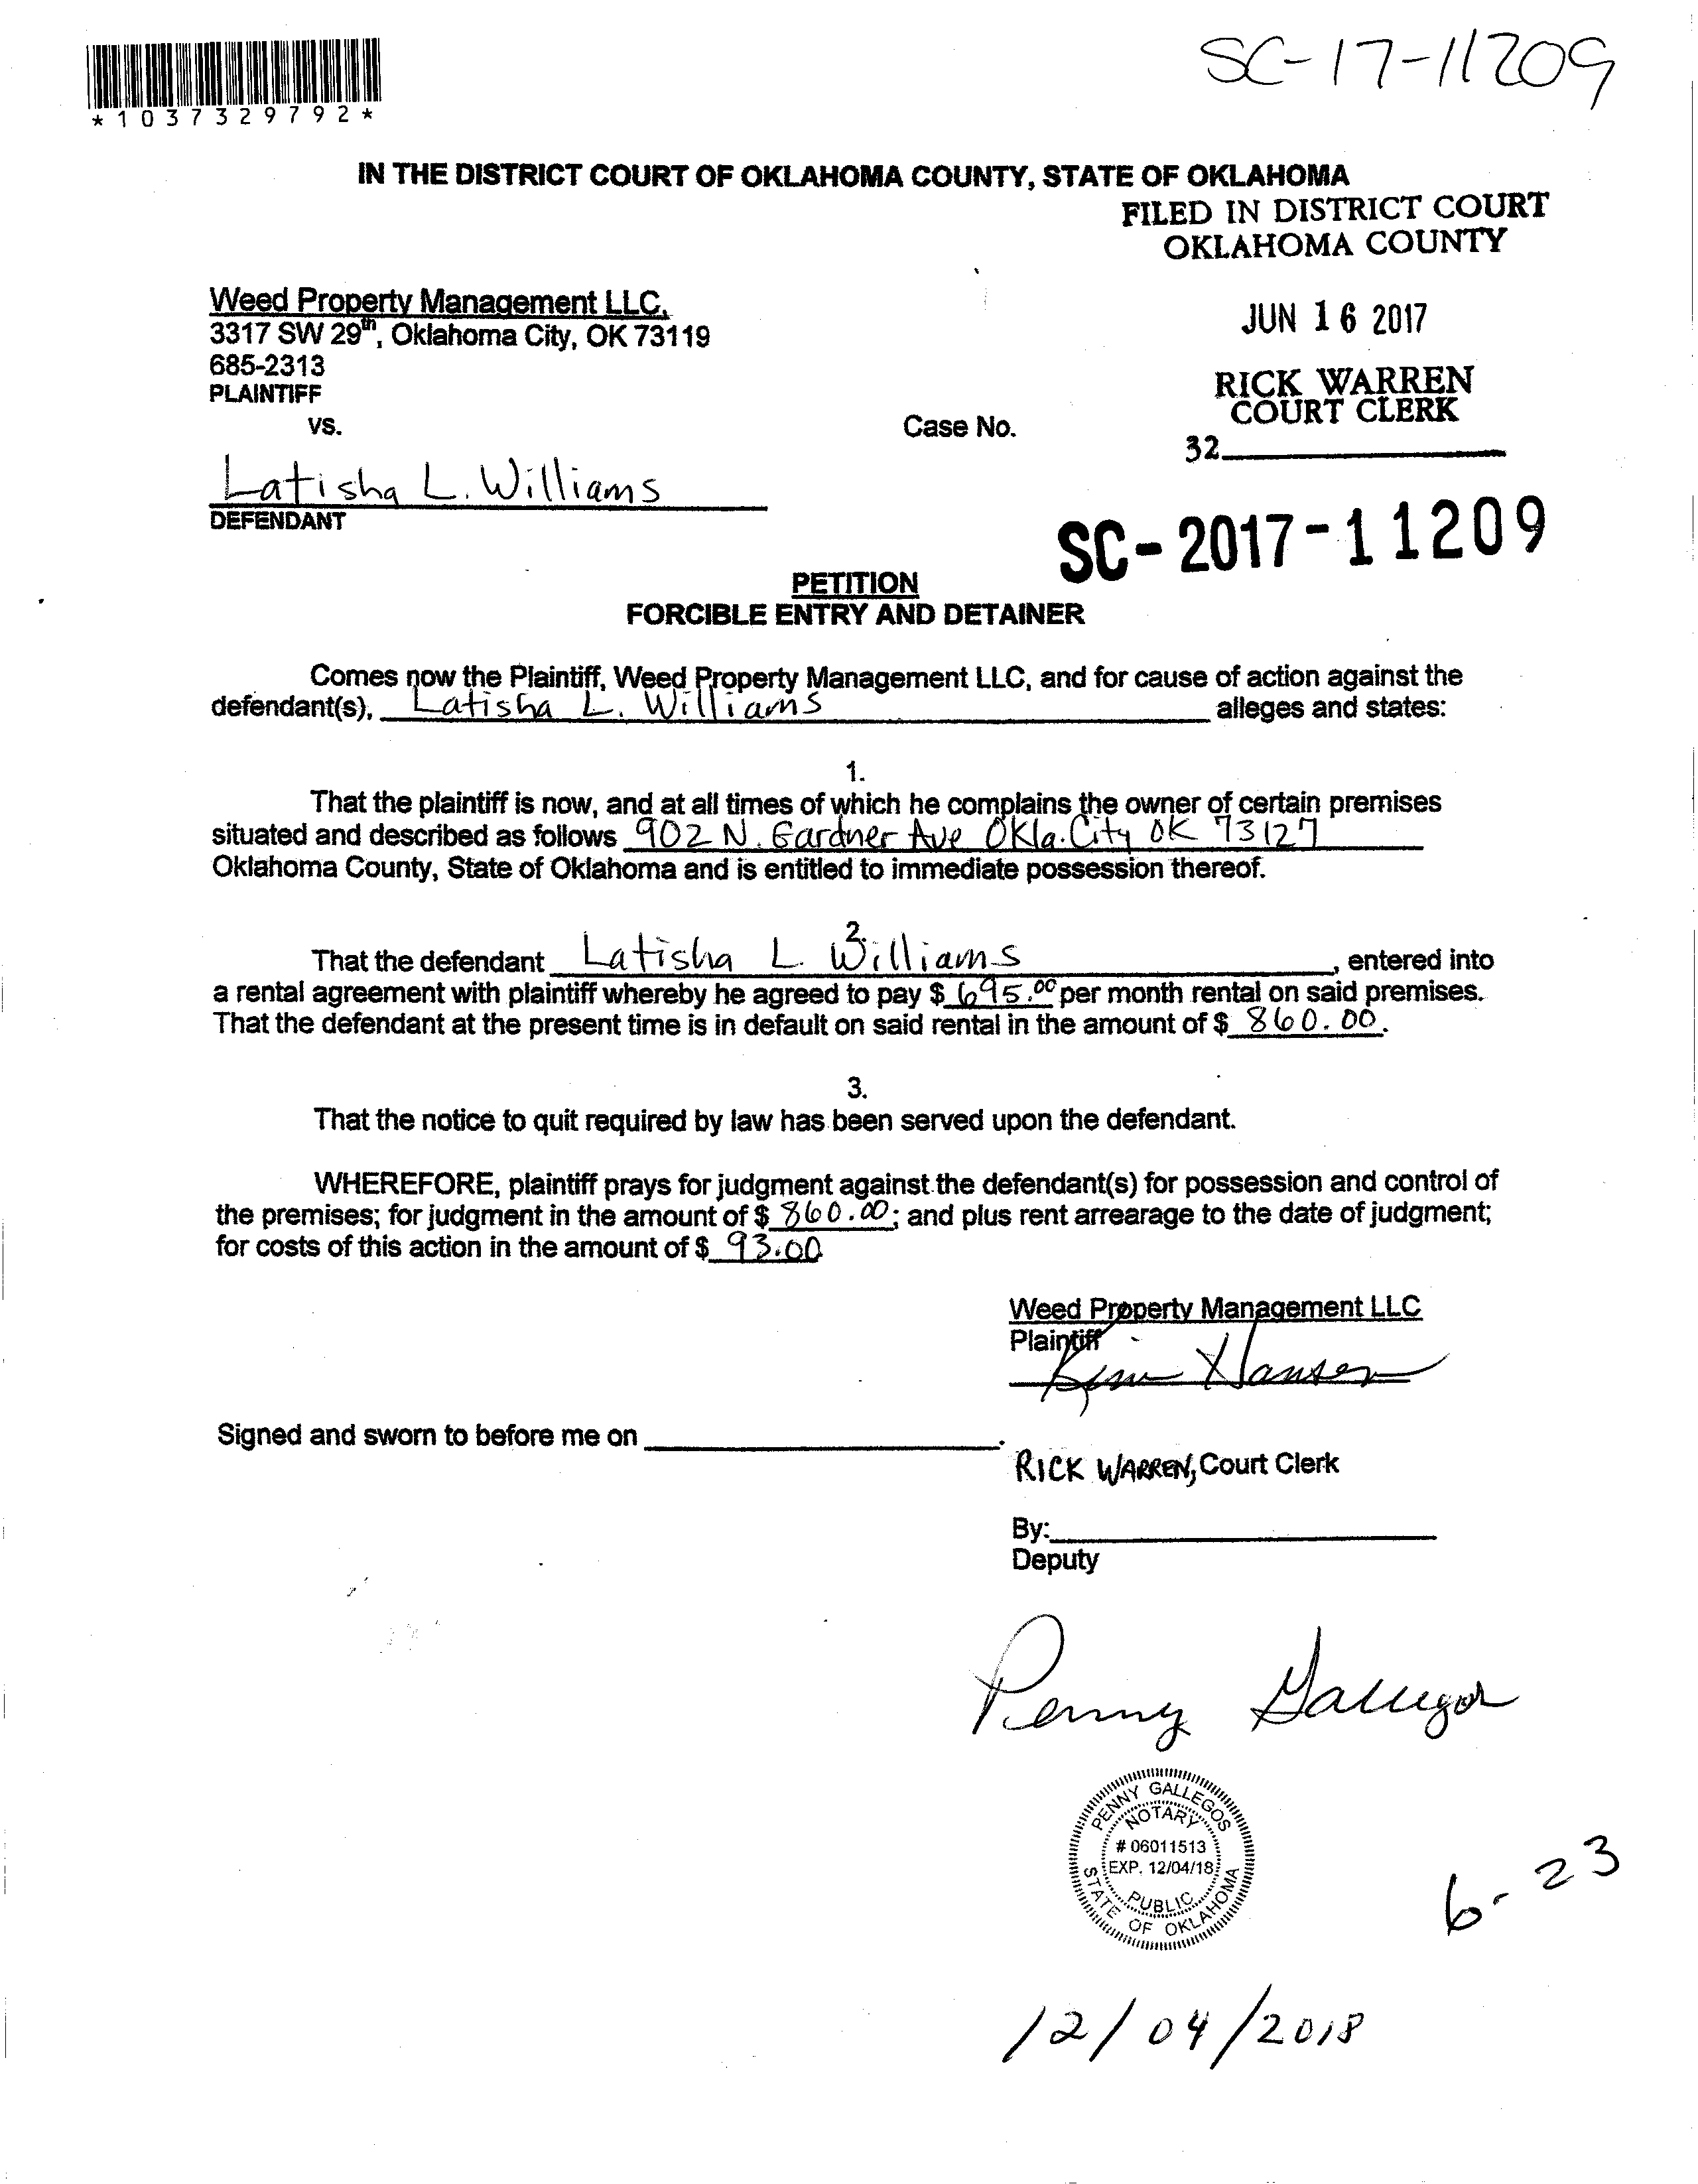 SC-17-11209
*1037329792*
IN THE DISTRICT COURT OF OKLAHOMA COUNTY, STATE OF OKLAHOMA
FILED IN DISTRICT COURT
OKLAHOMA COUNTY
JUN 16 2017
RICK WARREN
COURT CLERK
32
Weed Property Management LLC,
3317 SW 29th, Oklahoma City, OK 73119
685-2313
PLAINTIFF
vs.
Case No.
Latisha L. Williams
DEFENDANT
SC-2017-11209
PETITION
FORCIBLE ENTRY AND DETAINER
Comes now the Plaintiff, Weed Property Management LLC, and for cause of action against the
defendant(s), Latisha L. Williams alleges and states:
1.
That the plaintiff is now, and at all times of which he complains the owner of certain premises
situated and described as follows 902 N. Gardner Ave Okla. City OK 73127
Oklahoma County, State of Oklahoma and is entitled to immediate possession thereof.
2.
That the defendant Latisha L. Williams, entered into
a rental agreement with plaintiff whereby he agreed to pay $ 695.00 per month rental on said premises.
That the defendant at the present time is in default on said rental in the amount of $ 860.00.
3.
That the notice to quit required by law has been served upon the defendant.
WHEREFORE, plaintiff prays for judgment against the defendant(s) for possession and control of
the premises; for judgment in the amount of $ 860.00; and plus rent arrearage to the date of judgment;
for costs of this action in the amount of $ 93.00
Weed Property Management LLC
Plaintiff
Kim Hansen
Signed and sworn to before me on .
RICK WARREN, Court Clerk
By:
Deputy
Penny Gallegos
PENNY GALLEGOS
NOTARY
# 06011513
EXP. 12/04/18
PUBLIC
STATE OF OKLAHOMA
6-23
12/04/2018